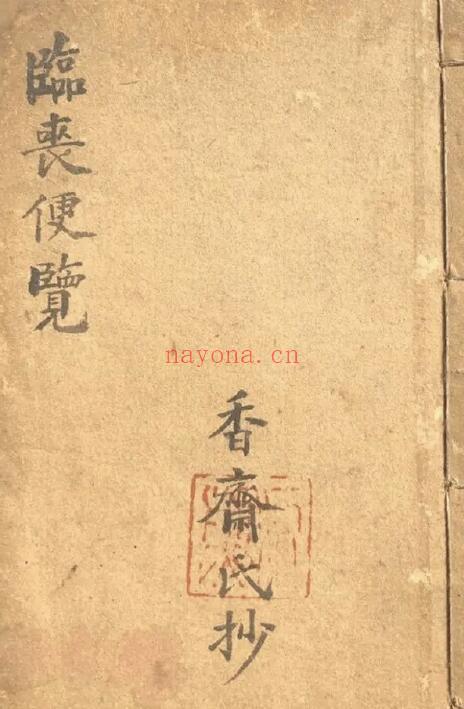 臨喪便覽
香齋氏抄
nayona.cn